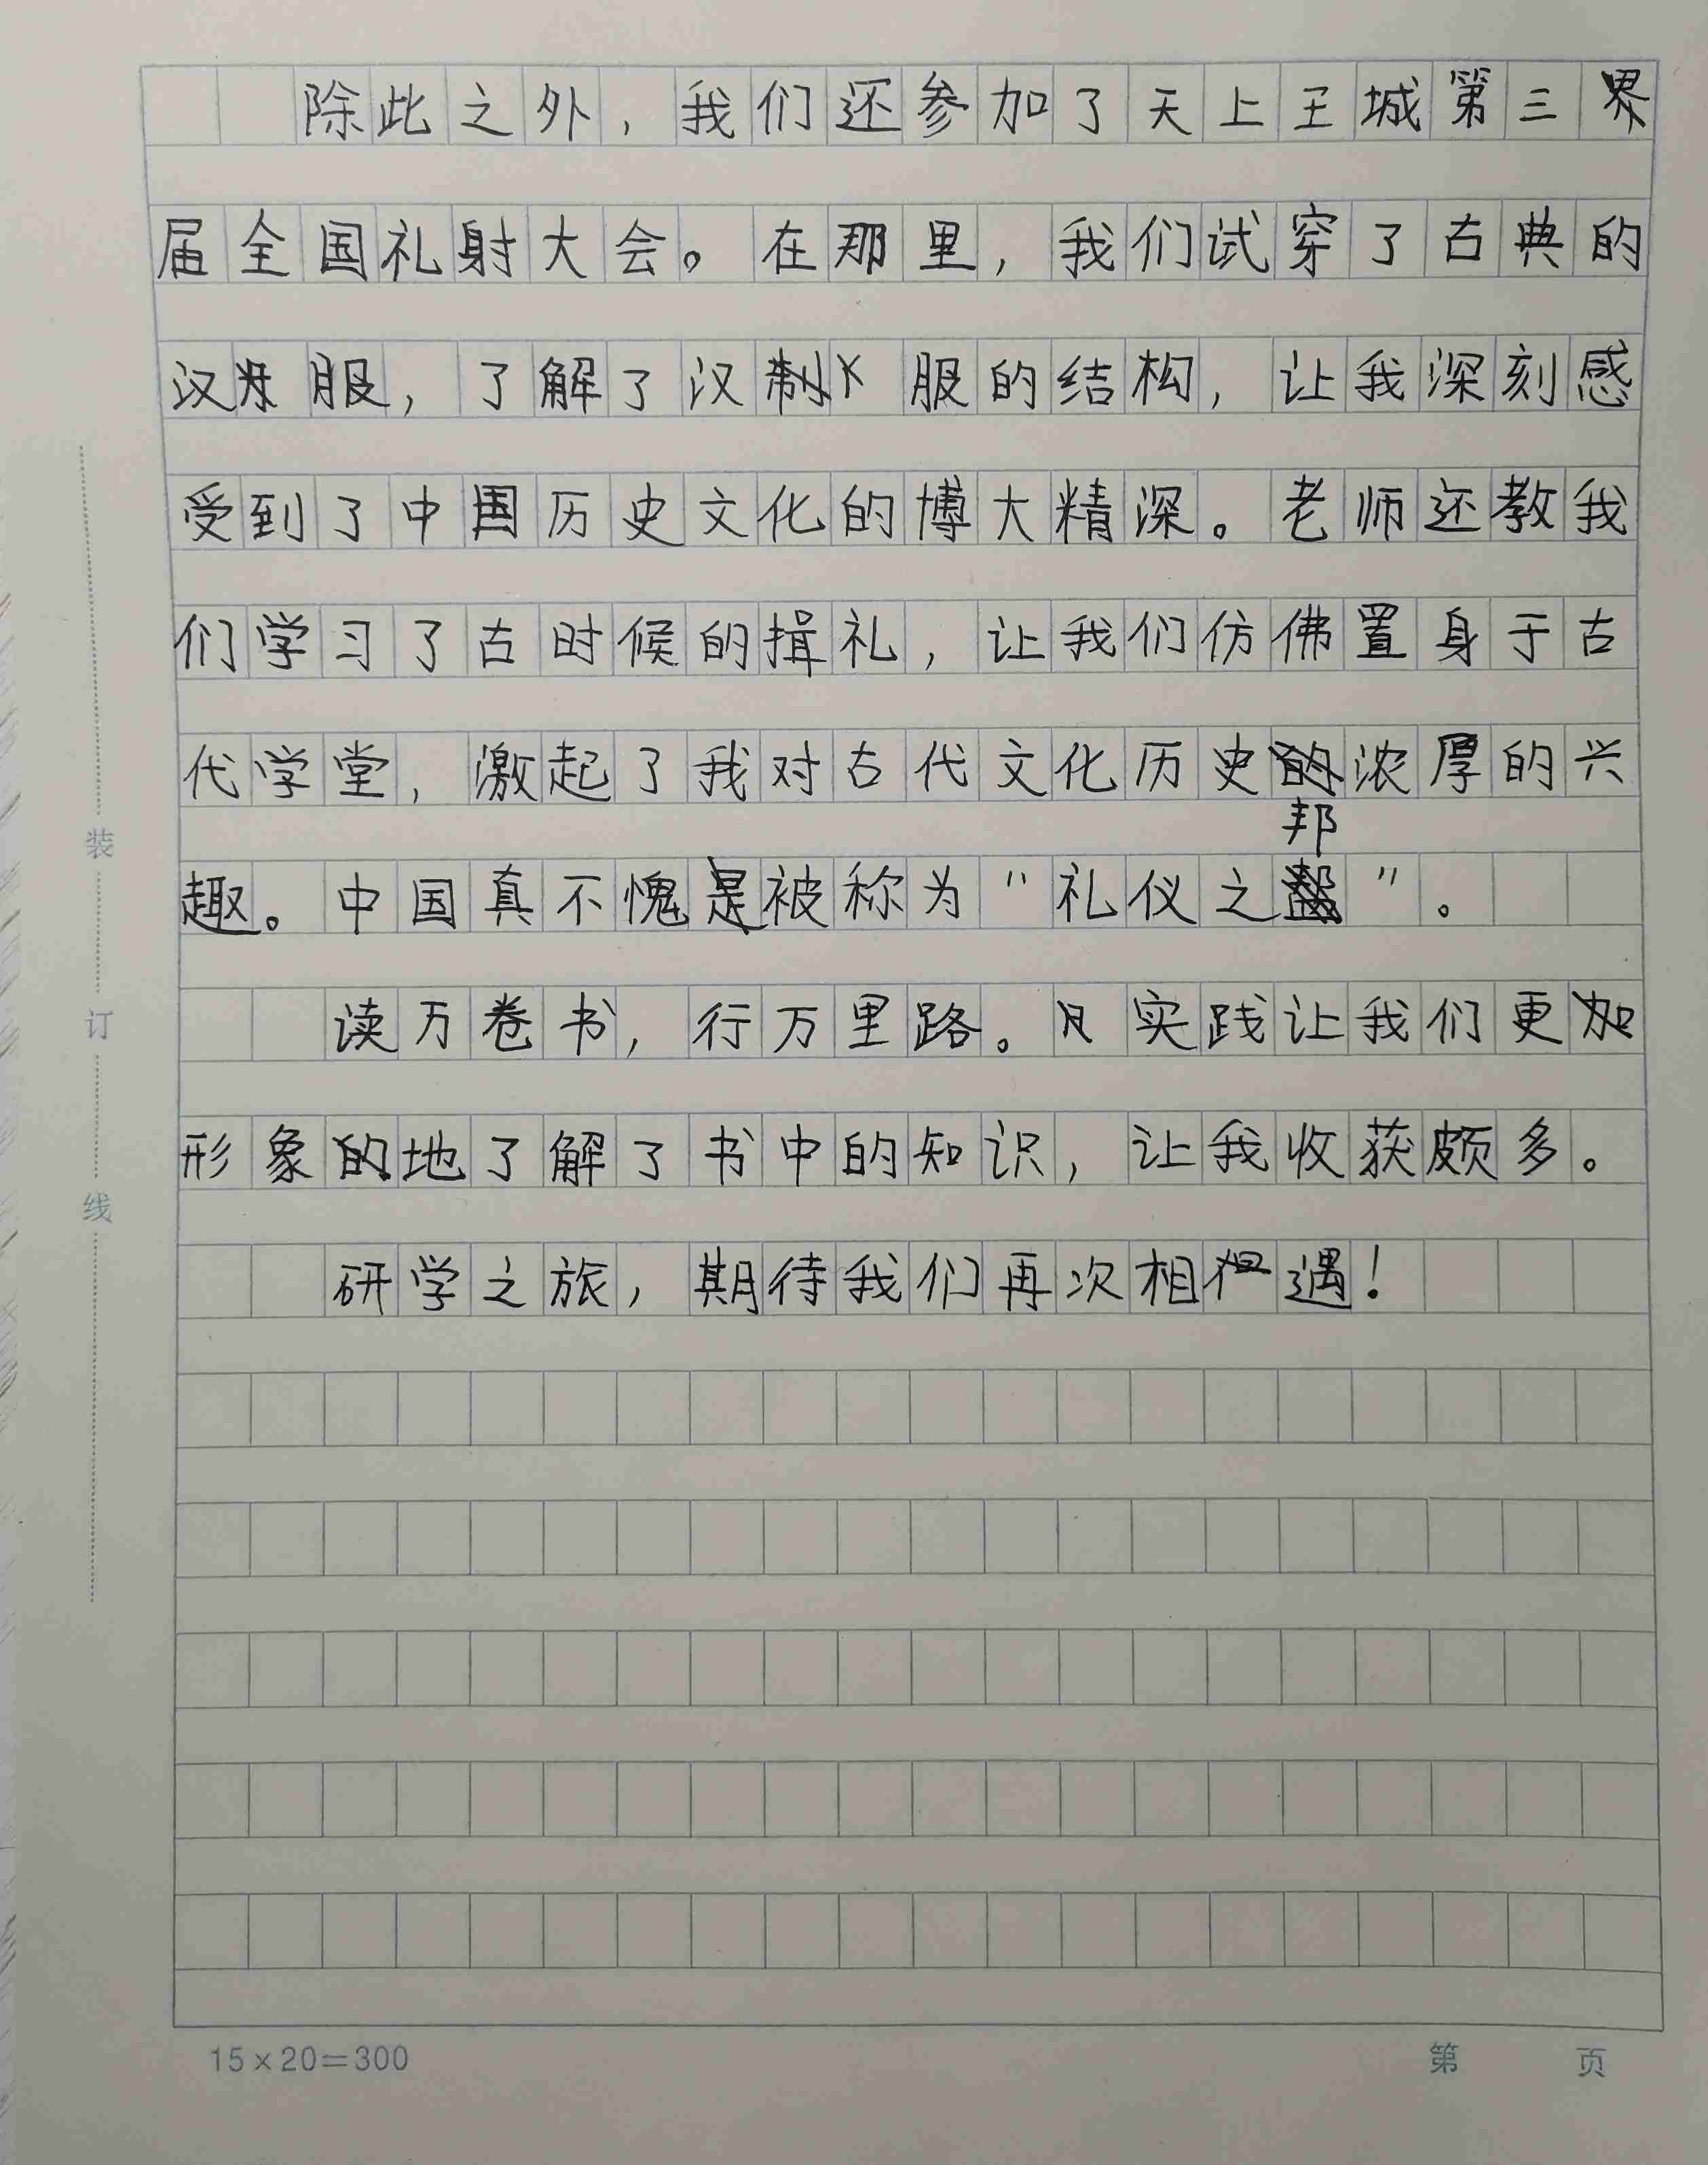 除此之外，我们还参加了天上王城第三界
届全国礼射大会。在那里，我们试穿了古典的
汉服，了解了汉服的结构，让我深刻感
受到了中国历史文化的博大精深。老师还教我
们学习了古时候的揖礼，让我们仿佛置身于古
代学堂，激起了我对古代文化历史的浓厚的兴
邦
趣。中国真不愧是被称为“礼仪之”。
读万卷书，行万里路。实践让我们更加
形象的地了解了书中的知识，让我收获颇多。
研学之旅，期待我们再次相遇！
装
订
线
15×20=300
第 页